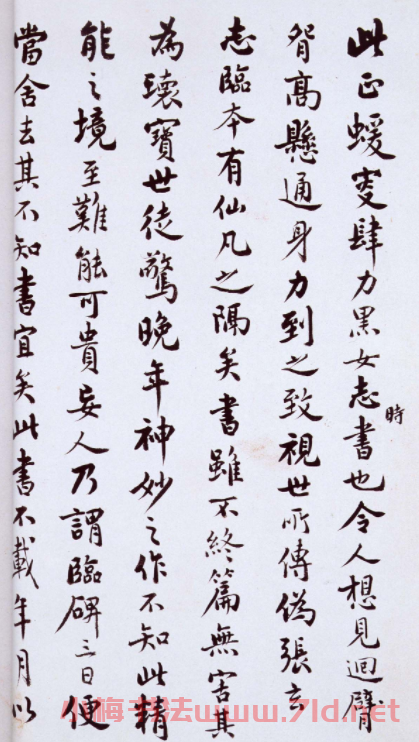 此正蝯叟肆力黑女志時書也令人想見迴臂
肘高懸通身力到之致視世所傳偽張玄
志臨本有仙凡之隔矣書雖不終篇無害其
為瓌寶世徒驚晚年神妙之作不知此精
能之境至難能可貴妄人乃謂臨碑三日便
當舍去其不知書宜矣此書不載年月以
小梅书法www.7ld.net